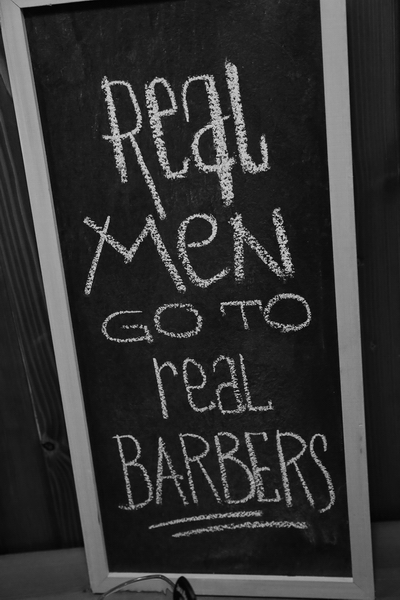 Real
MeN
GO TO
reaL
BARBERS